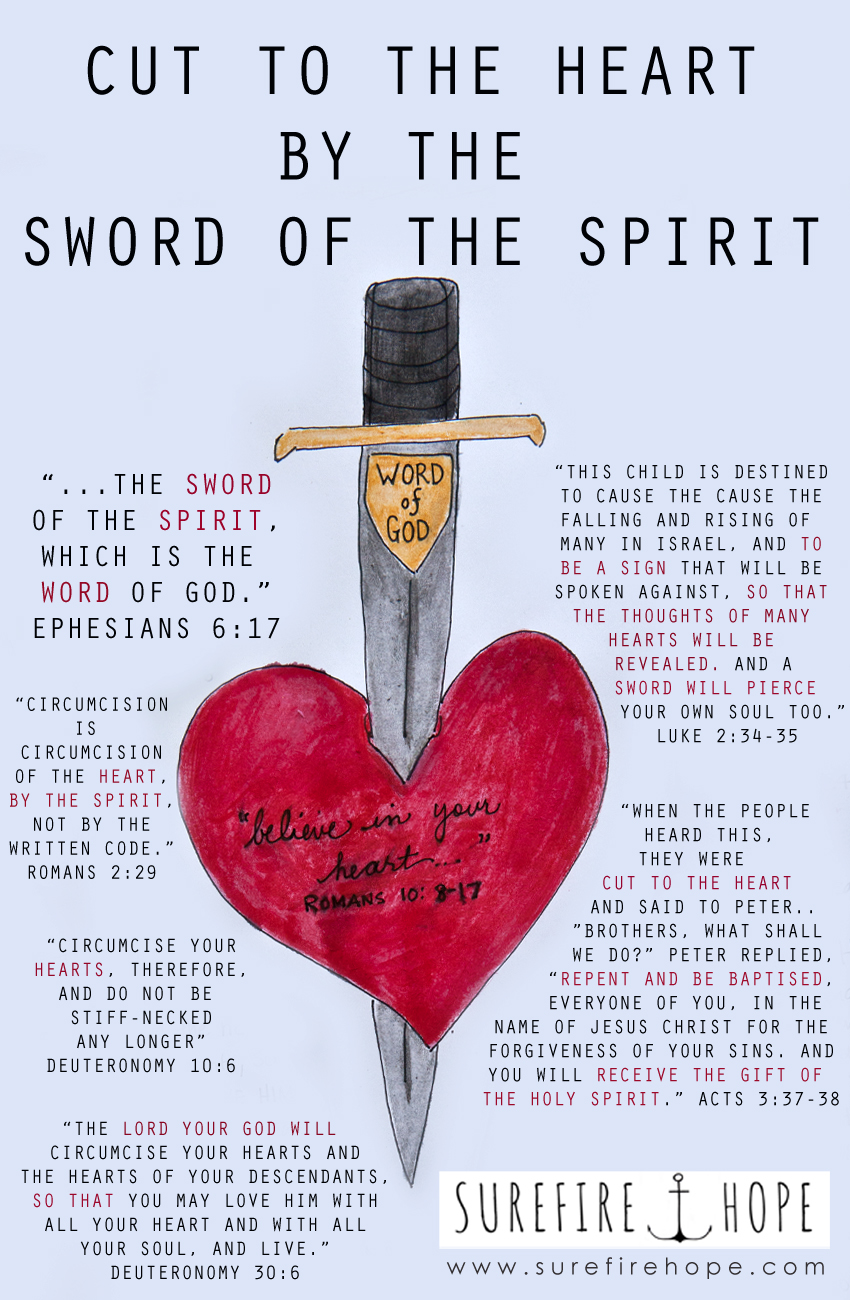 CUT TO THE HEART
BY THE
SWORD OF THE SPIRIT
WORD
of
GOD
“...THE SWORD
OF THE SPIRIT,
WHICH IS THE
WORD OF GOD.”
EPHESIANS 6:17
“THIS CHILD IS DESTINED
TO CAUSE THE CAUSE THE
FALLING AND RISING OF
MANY IN ISRAEL, AND TO
BE A SIGN THAT WILL BE
SPOKEN AGAINST, SO THAT
THE THOUGHTS OF MANY
HEARTS WILL BE
REVEALED. AND A
SWORD WILL PIERCE
YOUR OWN SOUL TOO.”
LUKE 2:34-35
“CIRCUMCISION
IS
CIRCUMCISION
OF THE HEART,
BY THE SPIRIT,
NOT BY THE
WRITTEN CODE.”
ROMANS 2:29
“believe in your
heart...”
ROMANS 10: 8-17
“WHEN THE PEOPLE
HEARD THIS,
THEY WERE
CUT TO THE HEART
AND SAID TO PETER..
”BROTHERS, WHAT SHALL
WE DO?” PETER REPLIED,
“REPENT AND BE BAPTISED,
EVERYONE OF YOU, IN THE
NAME OF JESUS CHRIST FOR THE
FORGIVENESS OF YOUR SINS. AND
YOU WILL RECEIVE THE GIFT OF
THE HOLY SPIRIT.” ACTS 3:37-38
“CIRCUMCISE YOUR
HEARTS, THEREFORE,
AND DO NOT BE
STIFF-NECKED
ANY LONGER”
DEUTERONOMY 10:6
“THE LORD YOUR GOD WILL
CIRCUMCISE YOUR HEARTS AND
THE HEARTS OF YOUR DESCENDANTS,
SO THAT YOU MAY LOVE HIM WITH
ALL YOUR HEART AND WITH ALL
YOUR SOUL, AND LIVE.”
DEUTERONOMY 30:6
SUREFIRE HOPE
www.surefirehope.com